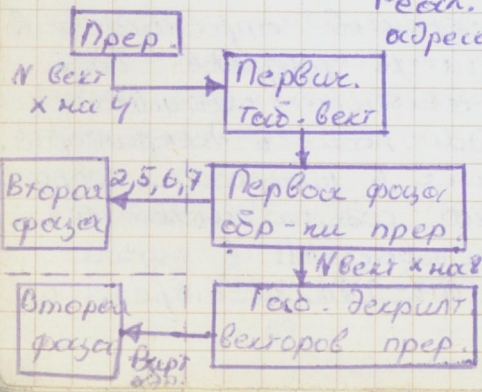 Реал.
адреса
Прер.
N вект
х на 4
Первич.
таб. вект
Вторая
фаза
2,5,6,7
Первая фаза
обр-ки прер.
N вект х на 8
Вторая
фаза
Вирт
адр.
Таб. дескрипт.
векторов прер.